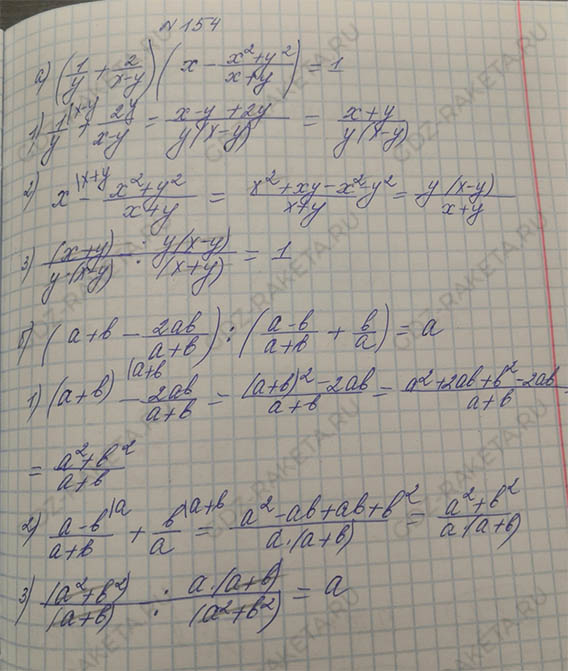 №154
а) (1/y + 2/(x-y)) (x - (x²+y²)/(x+y)) = 1
1) 1/y |x-y + 2y/(x-y) = (x-y+2y)/(y(x-y)) = (x+y)/(y(x-y))
2) x |x+y - (x²+y²)/(x+y) = (x²+xy-x²-y²)/(x+y) = y(x-y)/(x+y)
3) (x+y)/(y·(x-y)) : y(x-y)/(x+y) = 1
б) (a+b - 2ab/(a+b)) : ((a-b)/(a+b) + b/a) = a
1) (a+b) |a+b - 2ab/(a+b) = ((a+b)²-2ab)/(a+b) = (a²+2ab+b²-2ab)/(a+b) =
= (a²+b²)/(a+b)
2) (a-b)/(a+b) |a + b/a |a+b = (a²-ab+ab+b²)/(a·(a+b)) = (a²+b²)/(a·(a+b))
3) (a²+b²)/(a+b) : a·(a+b)/(a²+b²) = a
GDZ-RAKETA.RU